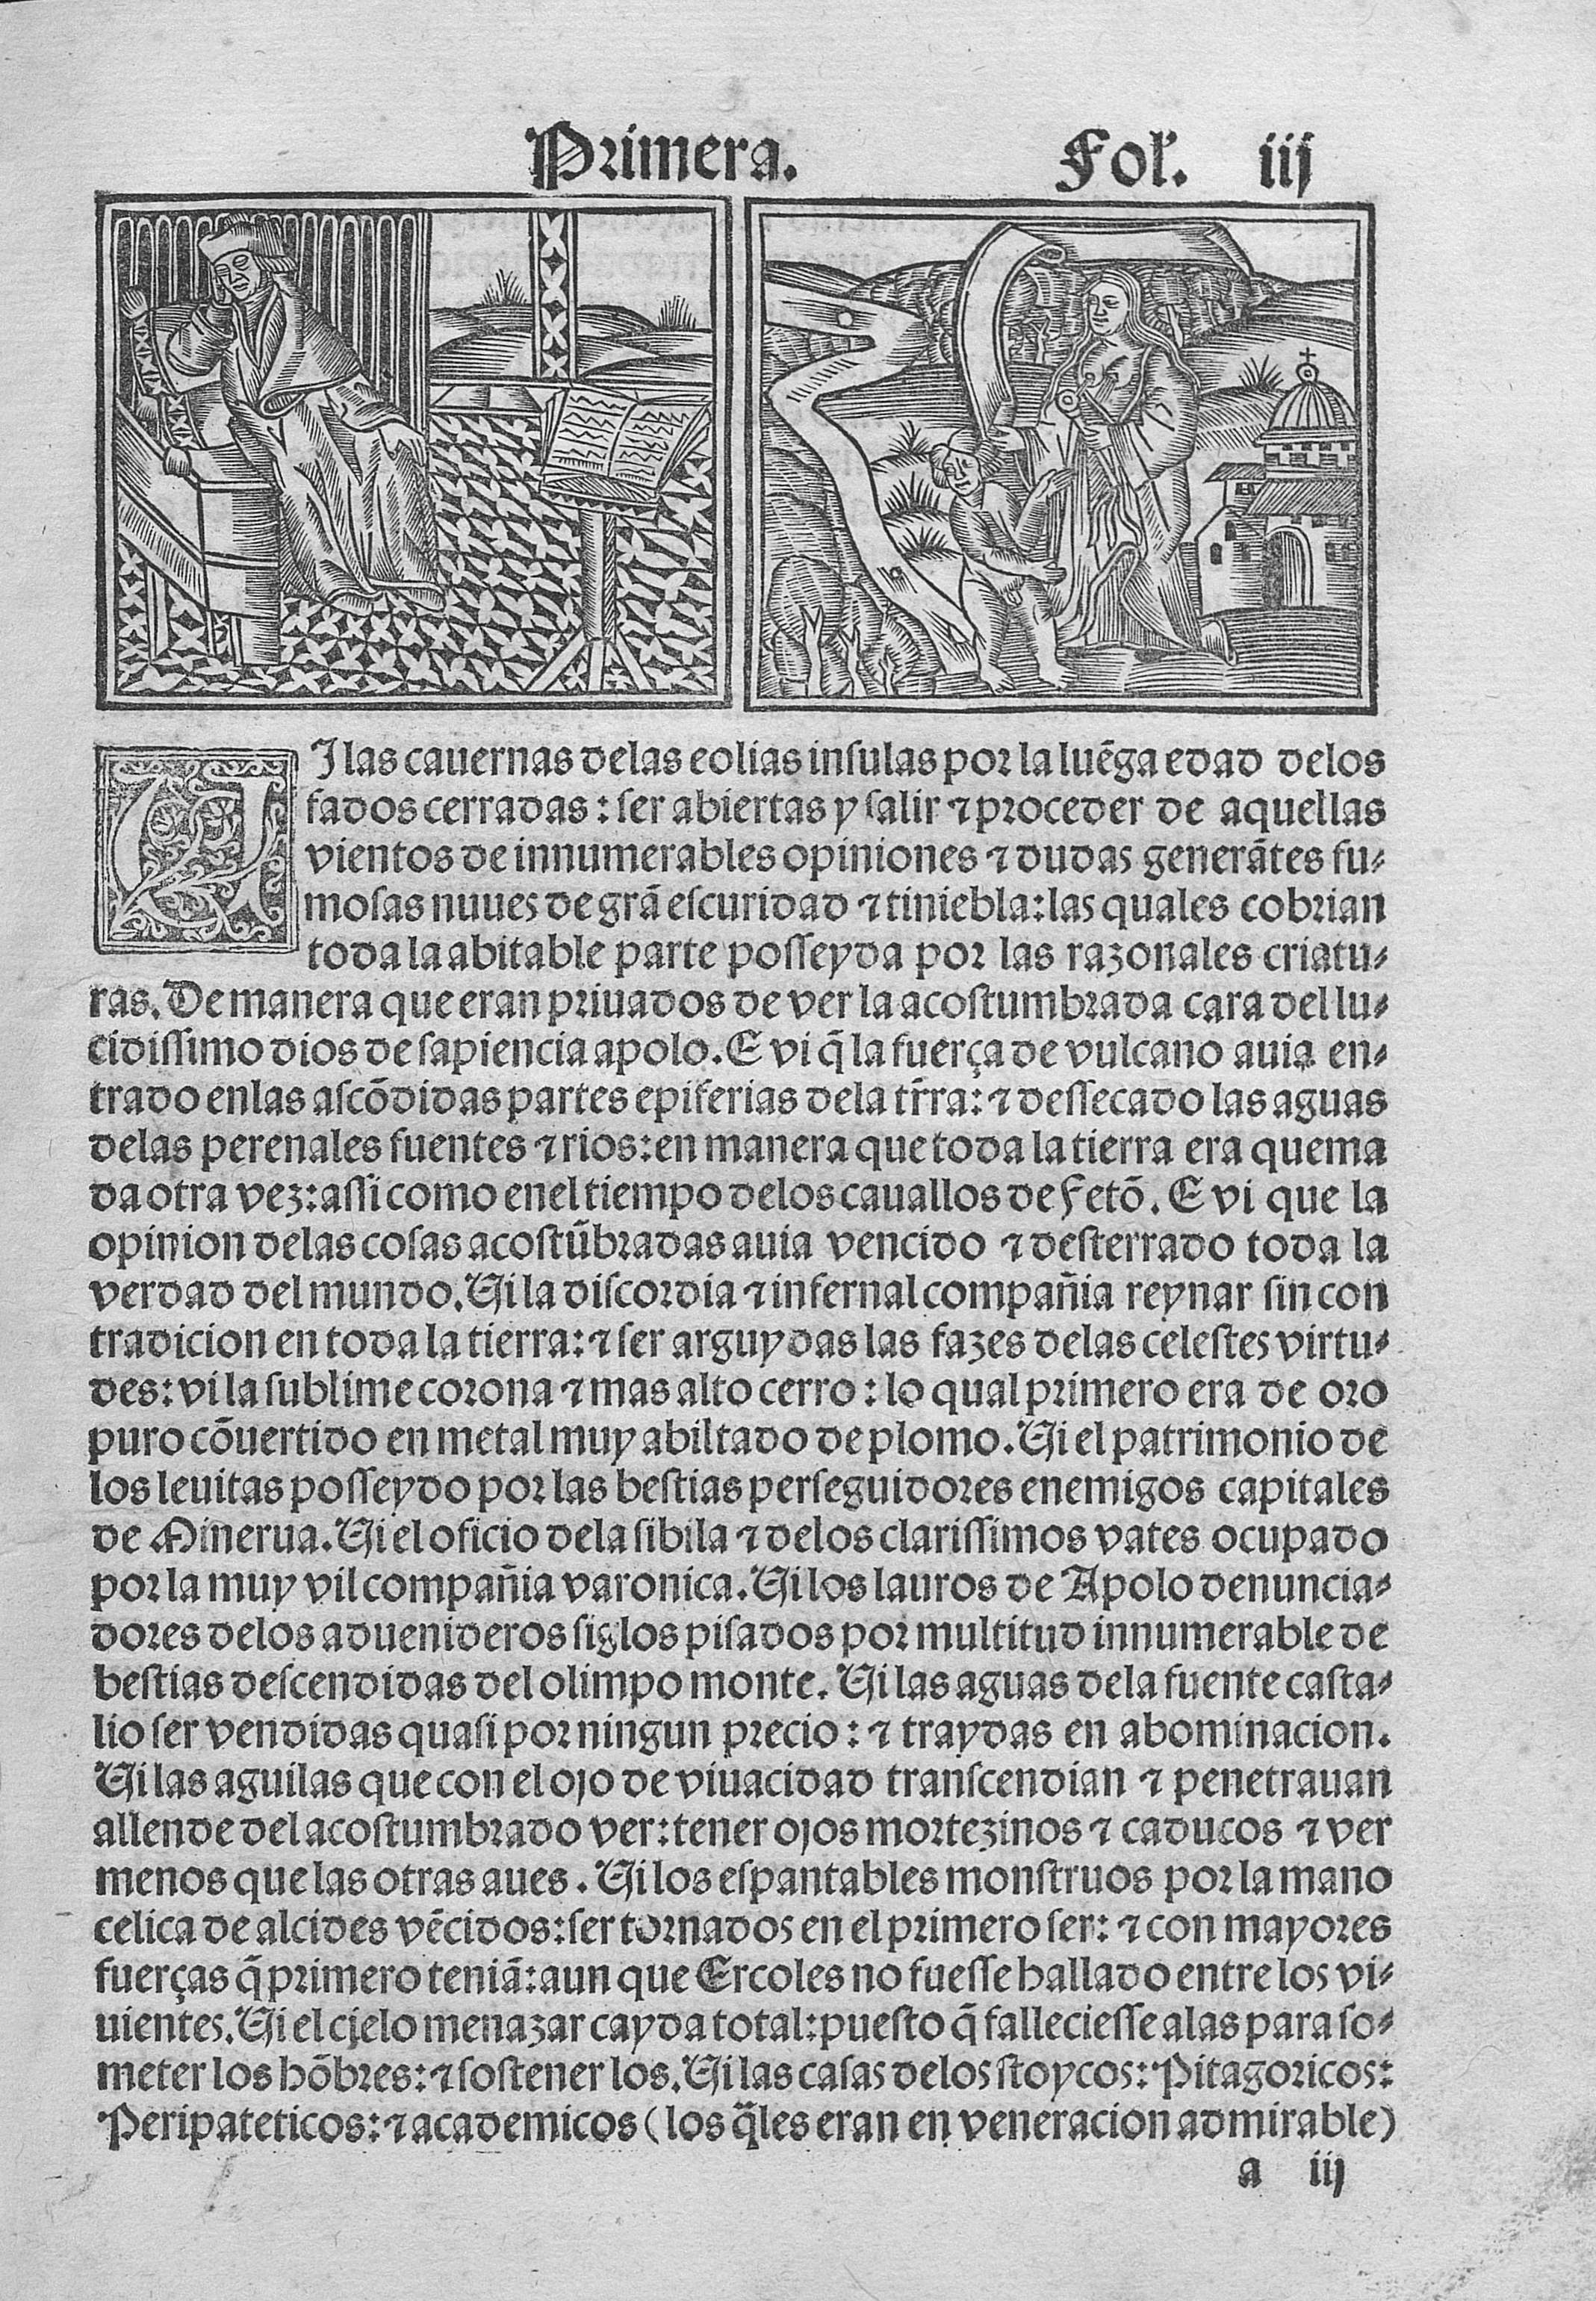 Primera. Fol. iij
VI las cauernas delas eolias insulas por la luēga edad delos
fados cerradas: ser abiertas y salir ⁊ proceder de aquellas
vientos de innumerables opiniones ⁊ dudas generātes fu-
mosas nuues de grā escuridad ⁊ tiniebla: las quales cobrian
toda la abitable parte posseyda por las razonales criatu-
ras. De manera que eran priuados de ver la acostumbrada cara del lu-
cidissimo dios de sapiencia apolo. E vi q̄ la fuerça de vulcano auia en-
trado enlas ascōdidas partes epiferias dela tr̄ra: ⁊ dessecado las aguas
delas perenales fuentes ⁊ rios: en manera que toda la tierra era quema
da otra vez: assi como enel tiempo delos cauallos de fetō. E vi que la
opinion delas cosas acostūbradas auia vencido ⁊ desterrado toda la
verdad del mundo. Vi la discordia ⁊ infernal compañia reynar sin con
tradicion en toda la tierra: ⁊ ser arguydas las fazes delas celestes virtu-
des: vi la sublime corona ⁊ mas alto cerro: lo qual primero era de oro
puro cōuertido en metal muy abiltado de plomo. Vi el patrimonio de
los leuitas posseydo por las bestias perseguidores enemigos capitales
de Minerua. Vi el oficio dela sibila ⁊ delos clarissimos vates ocupado
por la muy vil compañia varonica. Vi los lauros de Apolo denuncia-
dores delos aduenideros siglos pisados por multitud innumerable de
bestias descendidas del olimpo monte. Vi las aguas dela fuente casta-
lio ser vendidas quasi por ningun precio: ⁊ traydas en abominacion.
Vi las aguilas que con el ojo de viuacidad transcendian ⁊ penetrauan
allende del acostumbrado ver: tener ojos mortezinos ⁊ caducos ⁊ ver
menos que las otras aues. Vi los espantables monstruos por la mano
celica de alcides vēcidos: ser tornados en el primero ser: ⁊ con mayores
fuerças q̄ primero teniā: aun que Ercoles no fuesse hallado entre los vi-
uientes. Vi el cielo menazar cayda total: puesto q̄ falleciesse alas para so-
meter los hōbres: ⁊ sostener los. Vi las casas delos stoycos: Pitagoricos:
Peripateticos: ⁊ academicos (los q̄les eran en veneracion admirable)
a iij